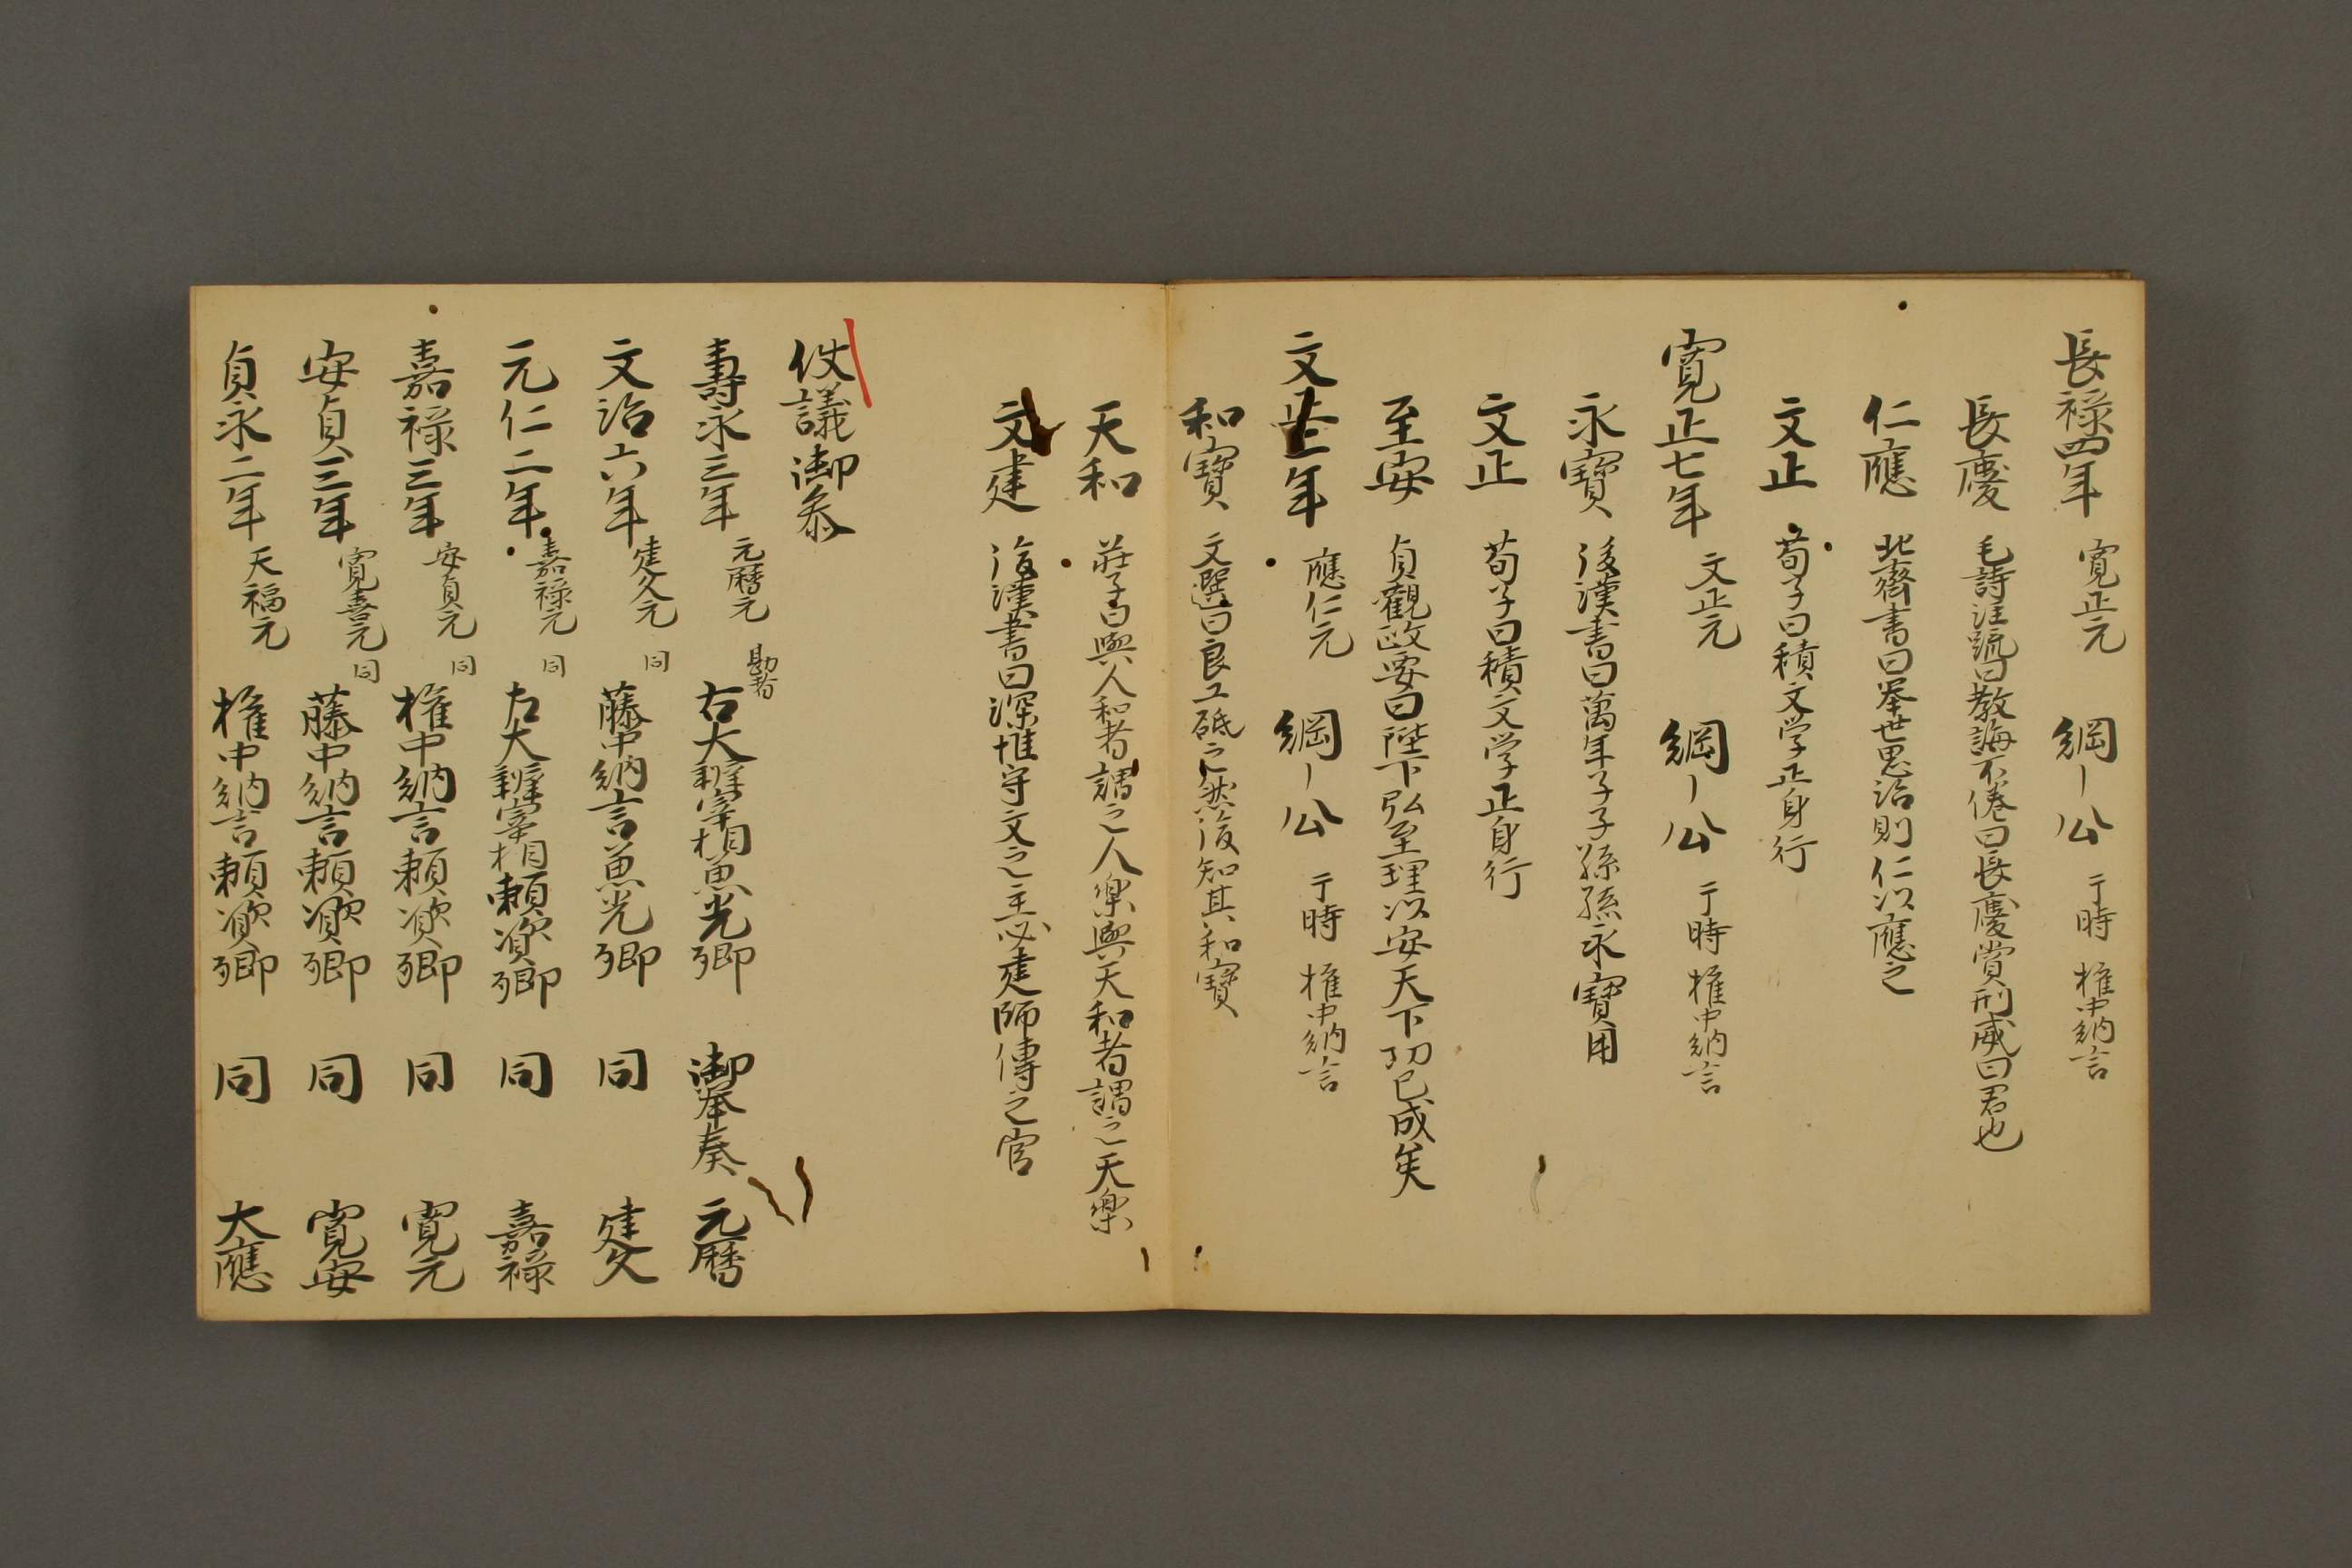 長禄四年 寛正元 綱〡公 于時 権中納言
長慶 毛詩注疏曰教誨不倦曰長慶賞刑威曰君也
仁應 北齊書曰挙世思治則仁以應之
文正 荀子曰積文学正身行
寛正七年 文正元 綱〡公 于時 権中納言
永寶 後漢書曰萬年子子孫孫永寶用
文正 荀子曰積文学正身行
至安 貞観政要曰陛下弘至理以安天下功已成矣
文正二年 應仁元 綱〡公 于時 権中納言
和寶 文選曰良工砥之然後知其和寶
天和 莊子曰與人和者謂之人楽與天和者謂之天樂
文建 後漢書曰深惟守文之主必建師傳之官
仗議御参
壽永三年 元暦元 勘者 右大辨宰相兼光卿 御挙奏 元暦
文治六年 建久元 同 藤中納言兼光卿 同 建久
元仁二年 嘉禄元 同 左大辨宰相頼資卿 同 嘉禄
嘉禄三年 安貞元 同 権中納言頼資卿 同 寛元
安貞三年 寛喜元 同 藤中納言頼資卿 同 寛安
貞永二年 天福元 権中納言頼資卿 同 大應